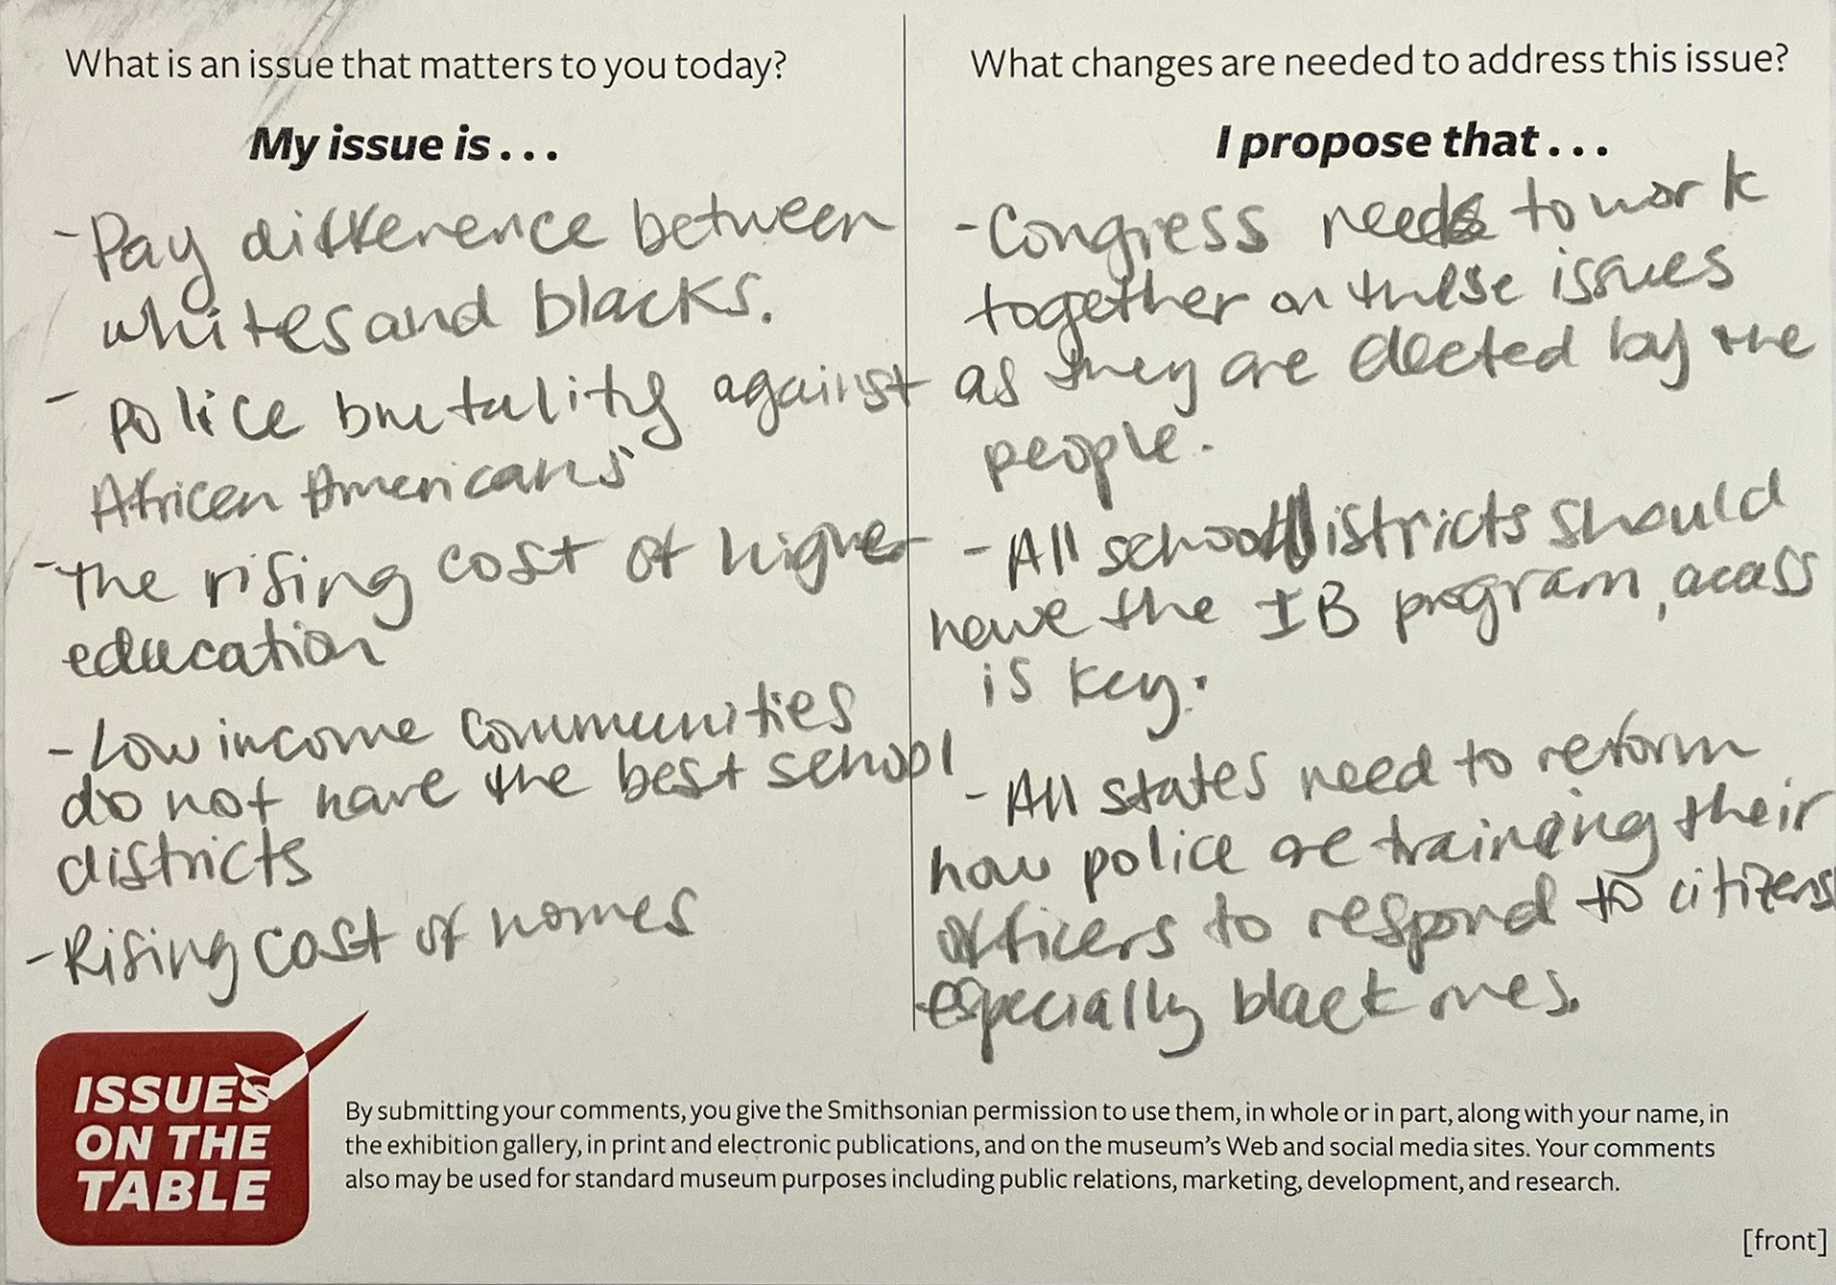 What is an issue that matters to you today?
My issue is...
- Pay difference between
whites and blacks.
- police brutality against
African Americans
- the rising cost of higher
education
- Low income communities
do not have the best school
districts
- Rising cost of homes
What changes are needed to address this issue?
I propose that...
- Congress needs to work
together on these issues
as they are elected by the
people.
- All school districts should
have the IB program, acess
is key.
- All states need to reform
how police are training their
officers to respond to citizens
especially black ones.
ISSUES
ON THE
TABLE
By submitting your comments, you give the Smithsonian permission to use them, in whole or in part, along with your name, in
the exhibition gallery, in print and electronic publications, and on the museum's Web and social media sites. Your comments
also may be used for standard museum purposes including public relations, marketing, development, and research.
[front]